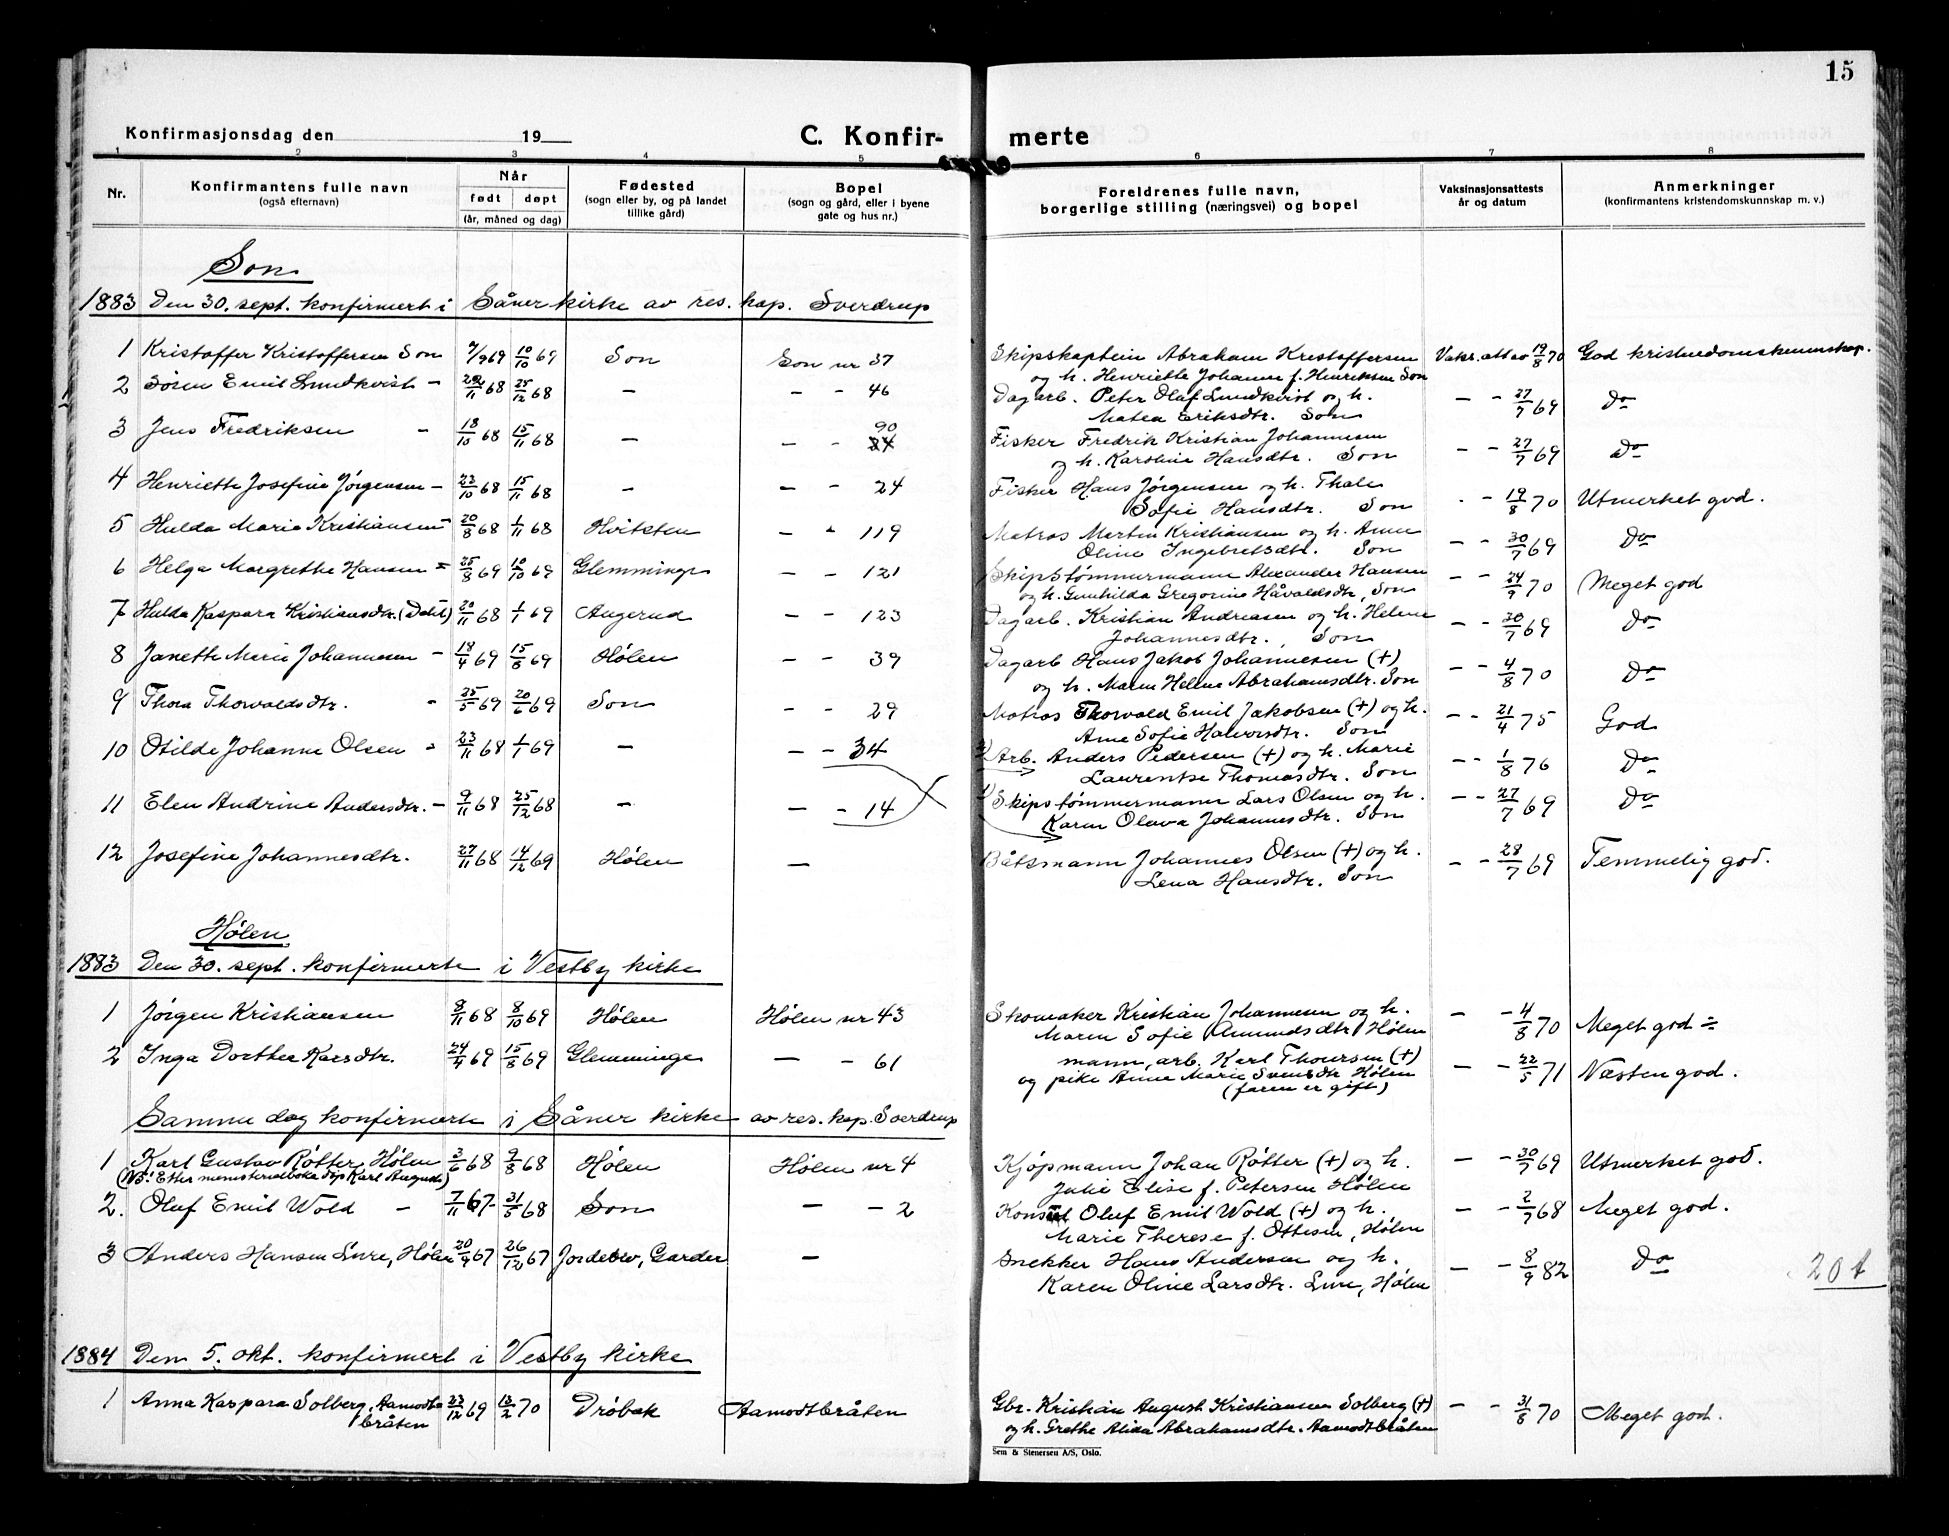 15
Konfirmasjonsdag den 19
C. Konfir- merte
1 2 3 4 5 6 7 8
Nr.
Konfirmantens fulle navn
(også efternavn)
Når
født døpt
(år, måned og dag)
Fødested
(sogn eller by, og på landet
tillike gård)
Bopel
(sogn og gård, eller i byene
gate og hus nr.)
Foreldrenes fulle navn,
borgerlige stilling (næringsvei) og bopel
Vaksinasjonsattests
år og datum
Anmerkninger
(konfirmantens kristendomskunnskap m. v.)
Son
1883 Den 30. sept. konfirmert i Såner kirke av res. kap. Sverdrup
1 Kristoffer Kristoffersen Son 9/9 69 10/10 69 Son Son nr 37 Skipskaptein Abraham Kristoffersen Vaks. att av 19/8 70 God kristendomskunnskap.
og h. Henriette Johanne f. Henriksen Son
2 Søren Emil Lundkvist - 22/11 68 25/12 68 - - - 46 Dagarb. Peter Oluf Lundkvist og h. - - 27/7 69 Do
Matea Eriksdtr. Son
3 Jens Fredriksen - 18/10 68 15/11 68 - - - 90 Fisker Fredrik Kristian Johannesen - - 27/7 69 Do
24 og h. Karoline Hansdtr. Son
4 Henriette Josefine Jørgensen - 23/10 68 15/11 68 - - - 24 Fisker Hans Jørgensen og h. Thale - - 19/8 70 Utmerket god.
Sofie Hansdtr. Son
5 Hulda Marie Kristiansen - 20/8 68 1/11 68 Hvitsten - - 119 Matros Martin Kristiansen og h. Anne - - 30/7 69 Do
Oline Ingebretsdtr. Son
6 Helga Margrethe Hansen = 25/8 69 10/10 69 Glemminge - - 121 Skipstømmermann Alexander Hansen - - 24/9 70 Meget god
og h. Gunhilda Gregorine Håvaldsdtr, Son
7 Hulda Kaspara Kristiansdtr. (Dahl) 20/11 68 1/1 69 Augerud - - 123 Dagarb. Kristian Andreasen og h. Helene - - 30/7 69 Do
Johannesdtr. Son
8 Janette Marie Johannesen - 18/4 69 15/8 69 Hølen - - 39 Dagarb Hans Jakob Johannesen (+) - - 4/8 70 Do
og h. Maren Helene Abrahamsdtr. Son
9 Thora Thorvaldsdtr. - 25/5 69 20/6 69 Son - - 29 Matros Thorvald Emil Jakobsen (+) og h. - - 21/4 75 God
Anne Sofie Halvorsdtr. Son
10 Otilde Johanne Olsen - 23/11 68 1/1 69 - - - 34 2) Arb. Anders Pedersen (+) og h. Marie - - 1/8 76 Do
Laurentse Thomasdtr. Son
11 Elen Andrine Andersdtr. - 9/11 68 25/12 68 - - - 14 1) Skipstømmermann Lars Olsen og h. - - 27/7 69 Do
Karen Olava Johannesdtr. Son
12 Josefine Johannesdtr. 27/11 68 14/12 69 Hølen - Båtsmann Johannes Olsen (+) og h. - - 28/7 69 Temmelig god.
Lena Hansdtr. Son
Hølen
1883 Den 30. sept. konfirmerte i Vestby kirke
1 Jørgen Kristiansen 8/11 68 8/10 69 Hølen Hølen nr 43 Skomaker Kristian Johannesen og h. - - 4/8 70 Meget god ÷
Maren Sofie Amundsdtr Hølen
2 Inga Dorthea Karsdtr. 24/4 69 15/8 69 Glemminge - - 61 mann, arb. Karl Thoresen (+) - - 22/5 71 Næsten god.
og pike Anne Marie Svensdtr Hølen
(faren er gift)
Samme dag konfirmerte i Såner kirke av res. kap. Sverdrup
1 Karl Gustav Røtter, Hølen 3/6 68 9/8 68 Hølen Hølen nr 4 Kjøpmann Johan Røtter (+) og h. - - 30/7 69 Utmerket god.
(NB! Etter ministerialboka døp Karl August) Julie Elise f. Petersen Hølen
2. Oluf Emil Wold - 7/11 67 31/5 68 Son - - 2 Konsul Oluf Emil Wold (+) og h. - - 2/7 68 Meget god.
Marie Therese f. Ottesen, Hølen
3 Anders Hansen Lure, Hølen 20/9 67 26/12 67 Jordebro, Garder - Snekker Hans Andersen og h. - - 8/9 82 Do
Karen Oline Larsdtr. Lure, Hølen
20 t
1884 Den 5. okt. konfirmert i Vestby kirke
1 Anna Kaspara Solberg, Aamodt- 23/12 69 13/2 70 Drøbak Aamodtbråten Gbr. Kristian August Kristiansen Solberg (+) - - 31/8 70 Meget god.
bråten og h. Grethe Alida Abrahamsdtr. Aamodtbråten
Sem & Stenersen A/S, Oslo.